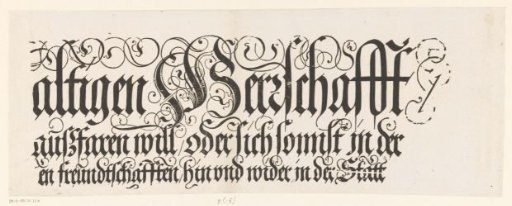 altigen Herrschafft
außfaren will oder sich sonnst in der
en freundtschafften, hin vnd wider in der Statt